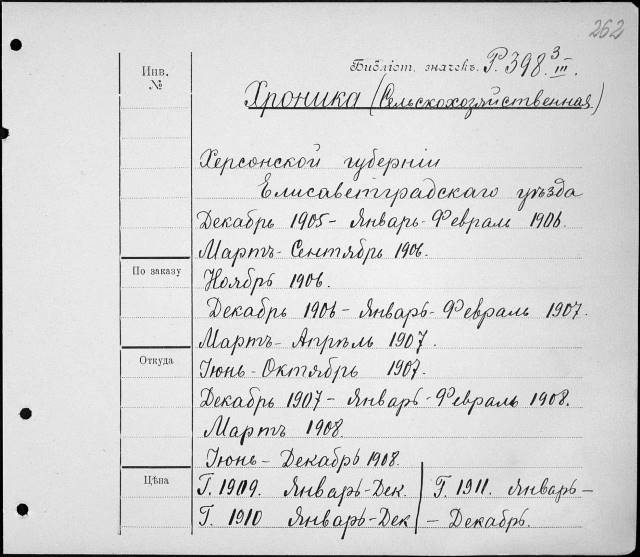 262
Библіот. значекъ. Р. 398 3/III.
Инв. №
Хроника (Сельскохозяйственная)
Херсонской губерніи
Елисаветградскаго уѣзда
Декабрь 1905 - Январь-Февраль 1906.
Мартъ-Сентябрь 1906.
По заказу
Ноябрь 1906.
Декабрь 1906 - Январь-Февраль 1907.
Мартъ-Апрѣль 1907.
Откуда
Іюнь-Октябрь 1907.
Декабрь 1907 - Январь-Февраль 1908.
Мартъ 1908.
Іюнь-Декабрь 1908.
Цѣна
Г. 1909. Январь-Дек. Г. 1911. Январь-
Г. 1910 Январь-Дек - Декабрь.